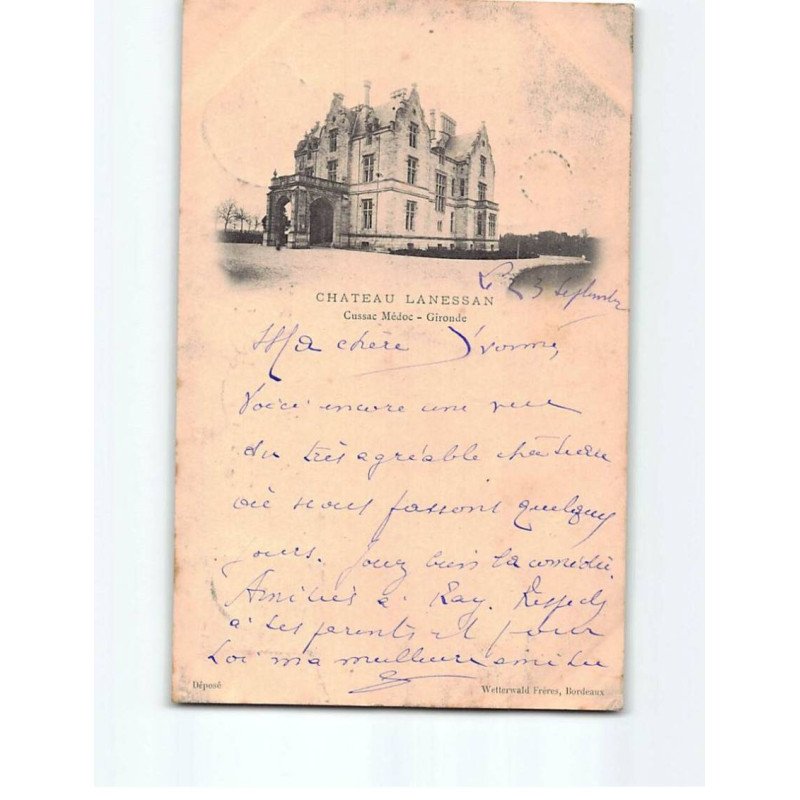 Le 23 Septembre
CHATEAU LANESSAN
Cussac Médoc - Gironde
Ma chère Yvonne,
Voici encore une vue
du très agréable château
où nous passons quelques
jours. Jouez bien la comédie.
Amitiés à Ray. Respects
à tes parents et pour
toi ma meilleure amitié
Déposé
Wetterwald Frères, Bordeaux